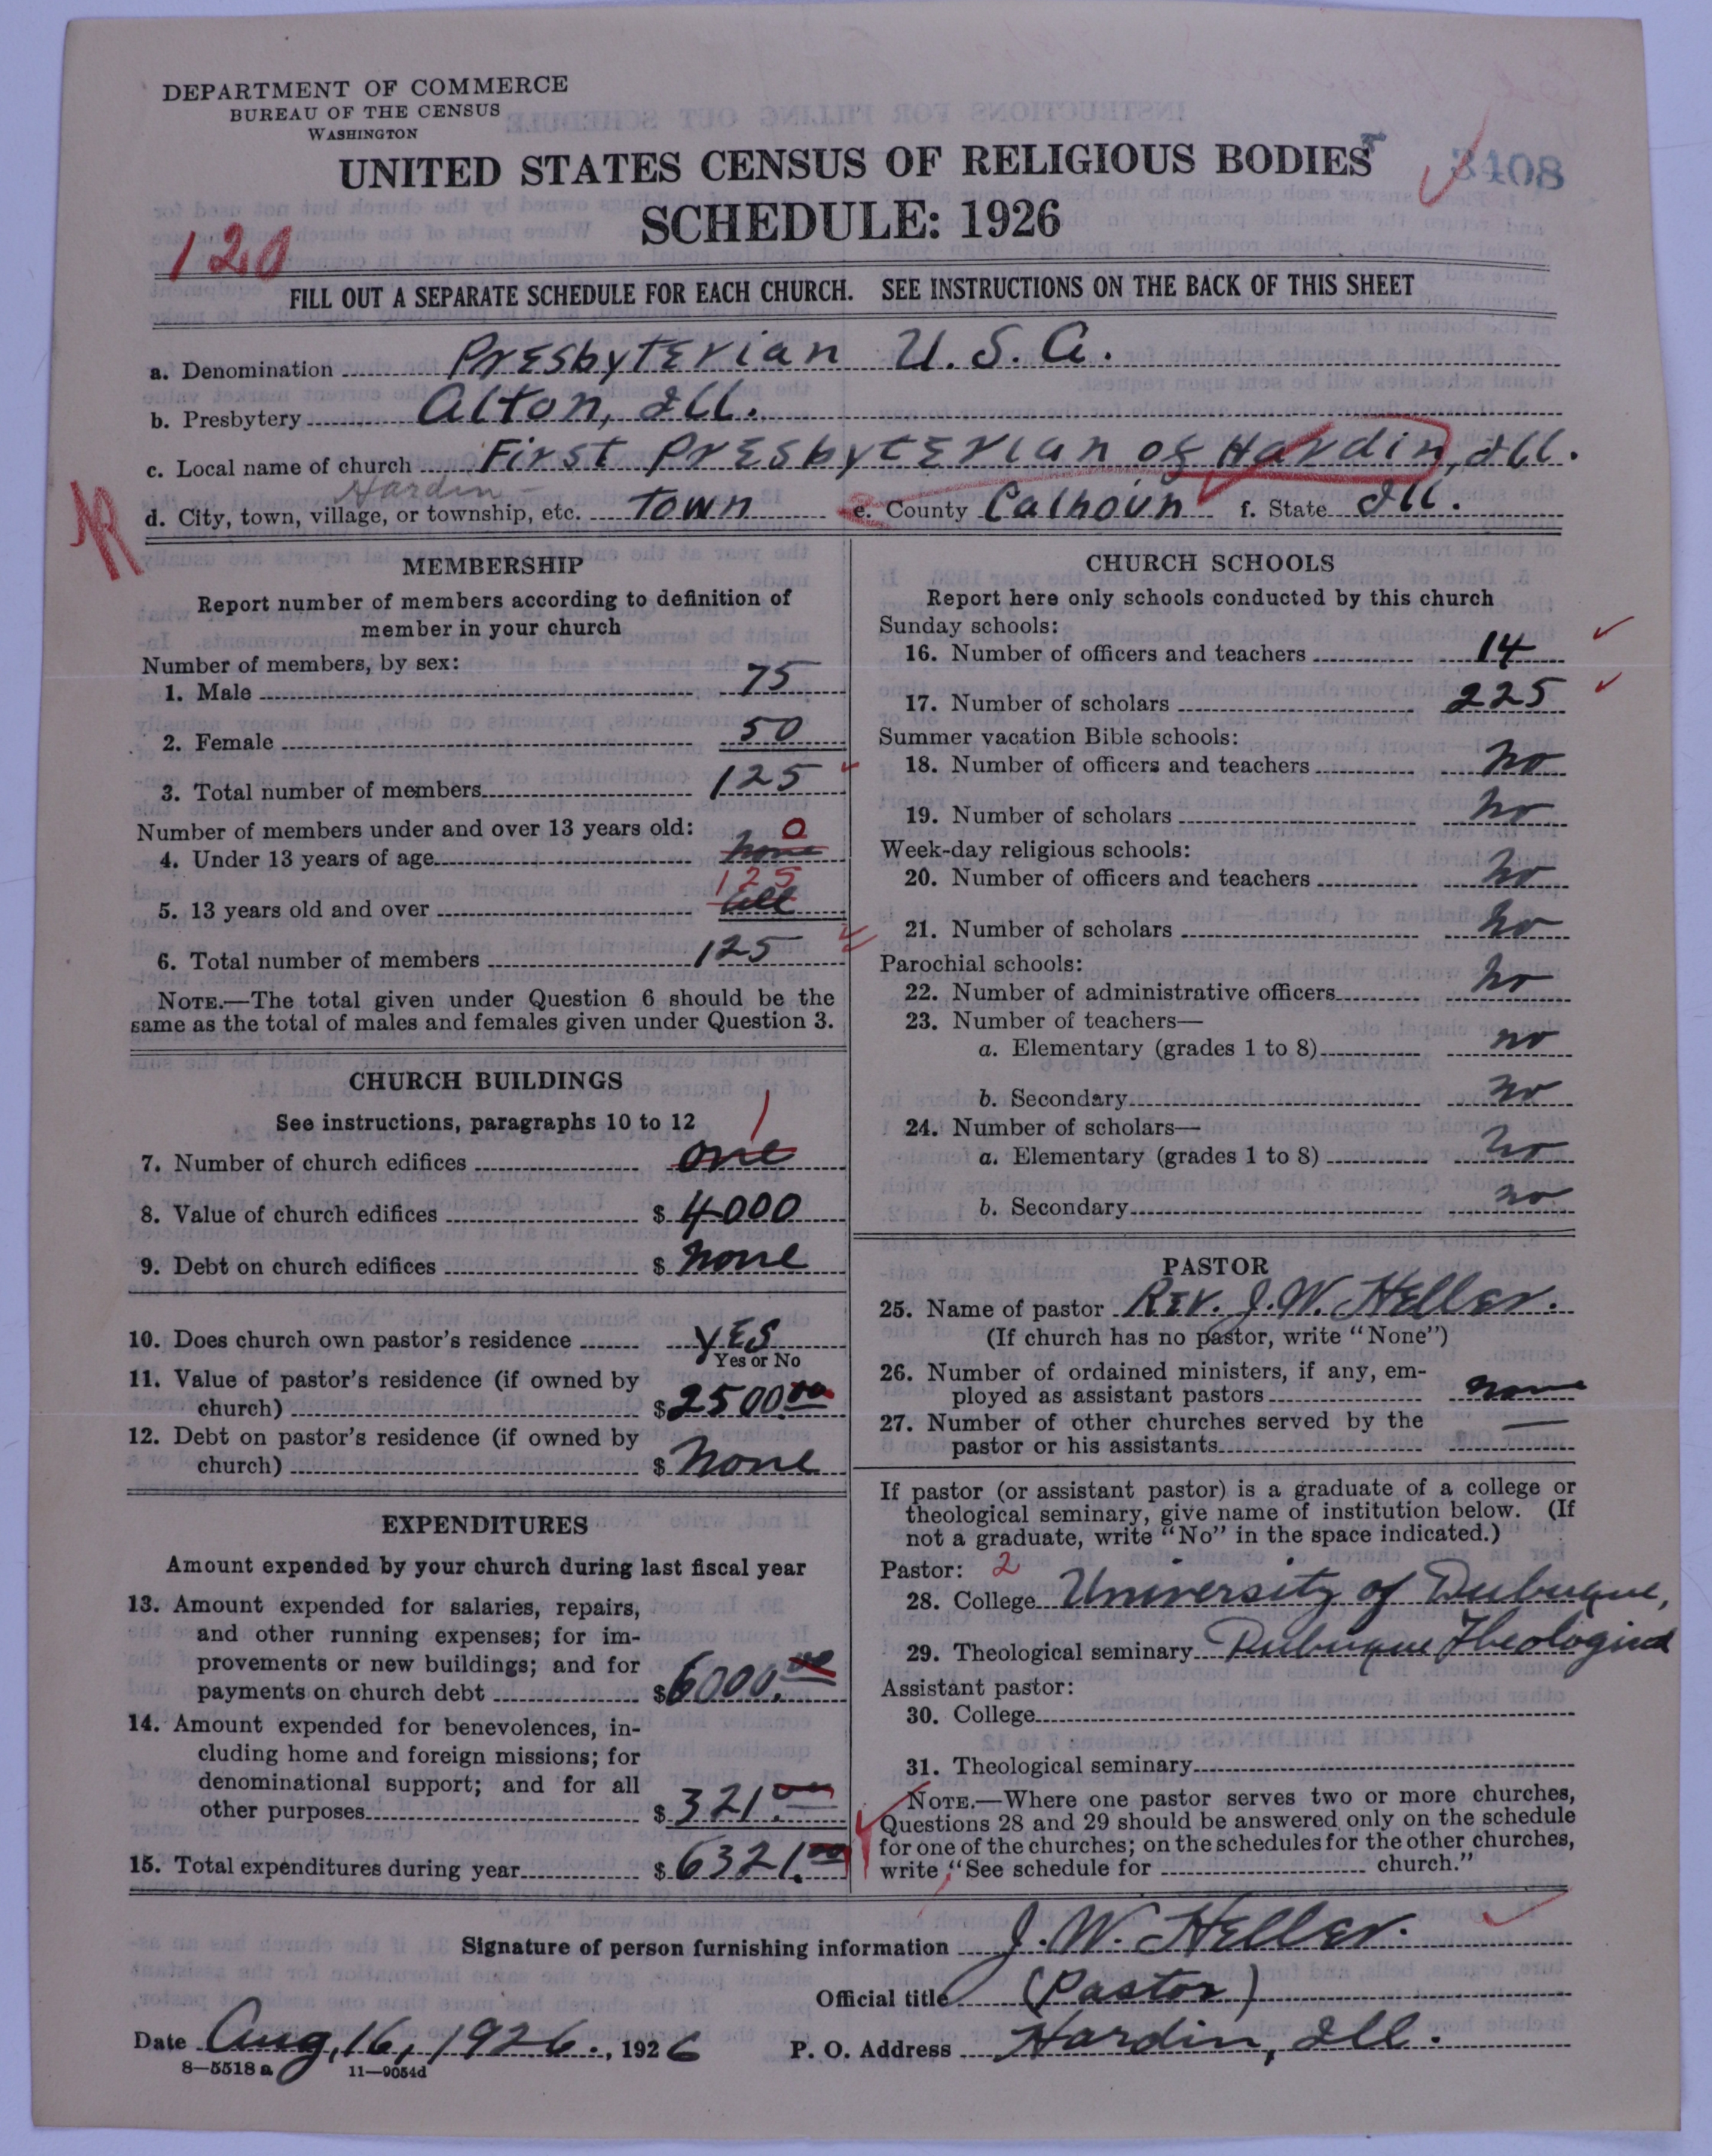 DEPARTMENT OF COMMERCE
BUREAU OF THE CENSUS
WASHINGTON
UNITED STATES CENSUS OF RELIGIOUS BODIES
3408
SCHEDULE: 1926
120
FILL OUT A SEPARATE SCHEDULE FOR EACH CHURCH. SEE INSTRUCTIONS ON THE BACK OF THIS SHEET
a. Denomination Presbyterian U.S.A.
b. Presbytery Alton, Ill.
c. Local name of church First Presbyterian of Hardin, Ill.
Hardin
d. City, town, village, or township, etc. Town e. County Calhoun f. State Ill.
MEMBERSHIP
Report number of members according to definition of
member in your church
Number of members, by sex:
1. Male 75
2. Female 50
3. Total number of members 125
Number of members under and over 13 years old:
0
4. Under 13 years of age none
125
5. 13 years old and over all
6. Total number of members 125
NOTE.—The total given under Question 6 should be the
same as the total of males and females given under Question 3.
CHURCH BUILDINGS
See instructions, paragraphs 10 to 12
1
7. Number of church edifices one
8. Value of church edifices $ 4000
9. Debt on church edifices $ none
10. Does church own pastor's residence YES
Yes or No
11. Value of pastor's residence (if owned by
church) $ 2500.00
12. Debt on pastor's residence (if owned by
church) $ none
EXPENDITURES
Amount expended by your church during last fiscal year
13. Amount expended for salaries, repairs,
and other running expenses; for im-
provements or new buildings; and for
payments on church debt $ 6000.00
14. Amount expended for benevolences, in-
cluding home and foreign missions; for
denominational support; and for all
other purposes $ 321.00
15. Total expenditures during year $ 6321.00
CHURCH SCHOOLS
Report here only schools conducted by this church
Sunday schools:
16. Number of officers and teachers 14
17. Number of scholars 225
Summer vacation Bible schools:
18. Number of officers and teachers no
19. Number of scholars no
Week-day religious schools:
20. Number of officers and teachers no
21. Number of scholars no
Parochial schools:
22. Number of administrative officers no
23. Number of teachers—
a. Elementary (grades 1 to 8) no
b. Secondary no
24. Number of scholars—
a. Elementary (grades 1 to 8) no
b. Secondary no
PASTOR
25. Name of pastor Rev. J.W. Heller.
(If church has no pastor, write "None")
26. Number of ordained ministers, if any, em-
ployed as assistant pastors none
27. Number of other churches served by the
pastor or his assistants —
If pastor (or assistant pastor) is a graduate of a college or
theological seminary, give name of institution below. (If
not a graduate, write "No" in the space indicated.)
Pastor: 2
28. College University of Dubuque,
29. Theological seminary Dubuque Theological
Assistant pastor:
30. College
31. Theological seminary
NOTE.—Where one pastor serves two or more churches,
Questions 28 and 29 should be answered only on the schedule
for one of the churches; on the schedules for the other churches,
write "See schedule for church."
Signature of person furnishing information J.W. Heller.
Official title (Pastor)
Date Aug, 16, 1926., 1926 P. O. Address Hardin, Ill.
8—5518 a 11—9054d